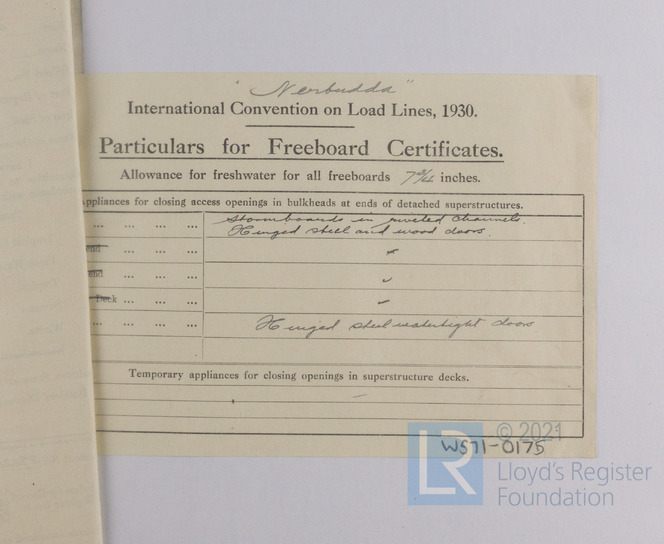 "Nerbudda"
International Convention on Load Lines, 1930.
Particulars for Freeboard Certificates.
Allowance for freshwater for all freeboards 7¾ inches.
ppliances for closing access openings in bulkheads at ends of detached superstructures.
... ... ... ... Stormboards in riveted channels.
Hinged steel and wood doors.
end ... ... ...
end ... ... ...
Deck ... ... ...
... ... ... Hinged steel watertight doors
Temporary appliances for closing openings in superstructure decks.
© 2021
W571-0175
LR
Lloyd's Register
Foundation